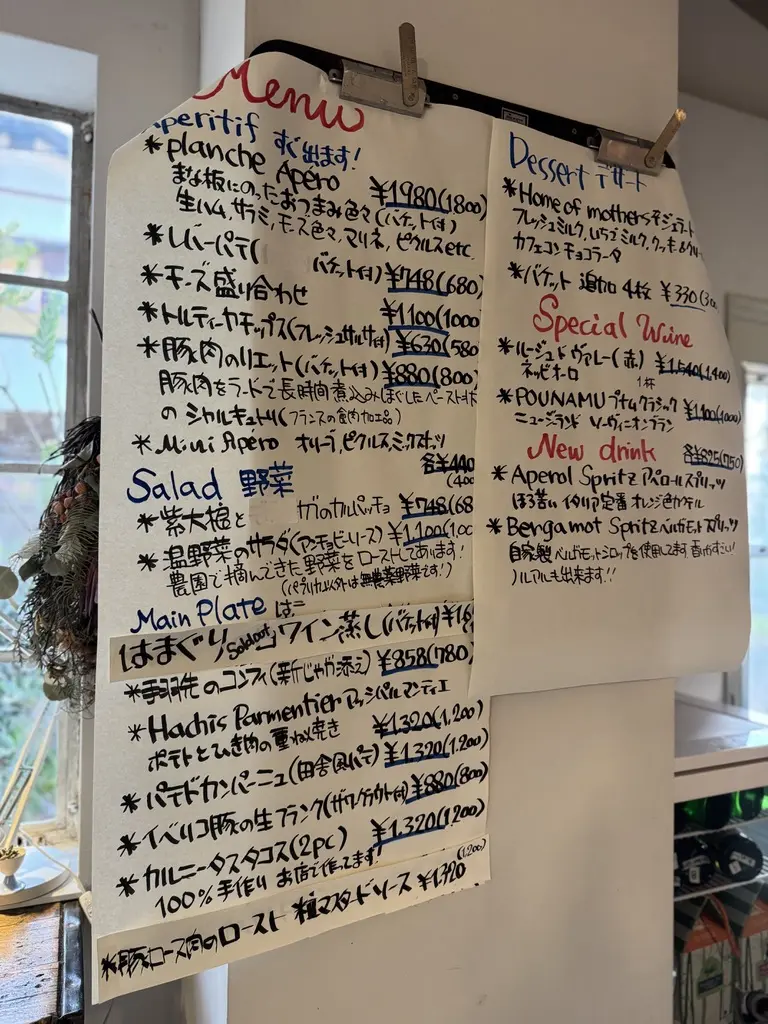 Menu
peritif すぐ出ます!
*planche Apéro ¥1980(1800)
まな板にのったおつまみ色々(バケット付)
生ハム,サラミ,チーズ色々,マリネ,ピクルスetc
*レバーパテ( バケット付) ¥748(680)
*チーズ盛り合わせ ¥1100(1000
*トルティーヤチップス(フレッシュサルサ付) ¥630(580
*豚肉のリエット(バケット付) ¥880(800)
豚肉をラードで長時間煮込みほぐしたペースト状
のシャルキュトリ(フランスの食肉加工品)
*Mini Apéro オリーブ,ピクルス,ミックスナッツ
各¥440
(400
Salad 野菜
*紫大根と のカルパッチョ ¥748(68
*温野菜のサラダ(アンチョビソース) ¥1,100(1,00
農園で摘んできた野菜をローストしてあります!
(パプリカ以外は無農薬野菜です!)
Main Plate
はまぐり Soldout ワイン蒸し(バケット付) ¥16
*手羽先のコンフィ(新じゃが添え) ¥858(780)
*Hachis Parmentier アッシパルマンティエ
ポテトとひき肉の重ね焼き ¥1,320(1,200)
*パテドカンパーニュ(田舎風パテ) ¥1,320(1,200)
*イベリコ豚の生フランク(ザワークラウト付) ¥880(800)
*カルニータスタコス(2pc) ¥1,320(1,200)
100%手作り お店で作ってます!
*豚ロース肉のロースト 粒マスタードソース ¥1,320 (1,200)
Dessert デザート
*Home of mothers ジェラート
フレッシュミルク,いちごミルク,クッキー&クリー
カフェコンチョコラータ
*バケット 追加 4枚 ¥330(30
Special Wine
*ルージュドヴァレー(赤) ¥1,540(1,400)
ネッビオーロ 1杯
*POUNAMU プナムクラシック ¥1,100(1000)
ニュージランド ソーヴィニオンブラン
New drink 各¥825(750)
*Aperol Spritz アペロールスプリッツ
ほろ苦いイタリア定番オレンジ色カクテル
*Bergamot Spritz ベルガモットスプリッツ
自家製ベルガモットシロップを使用してます 香りがすごい!
ノンアルも出来ます!!